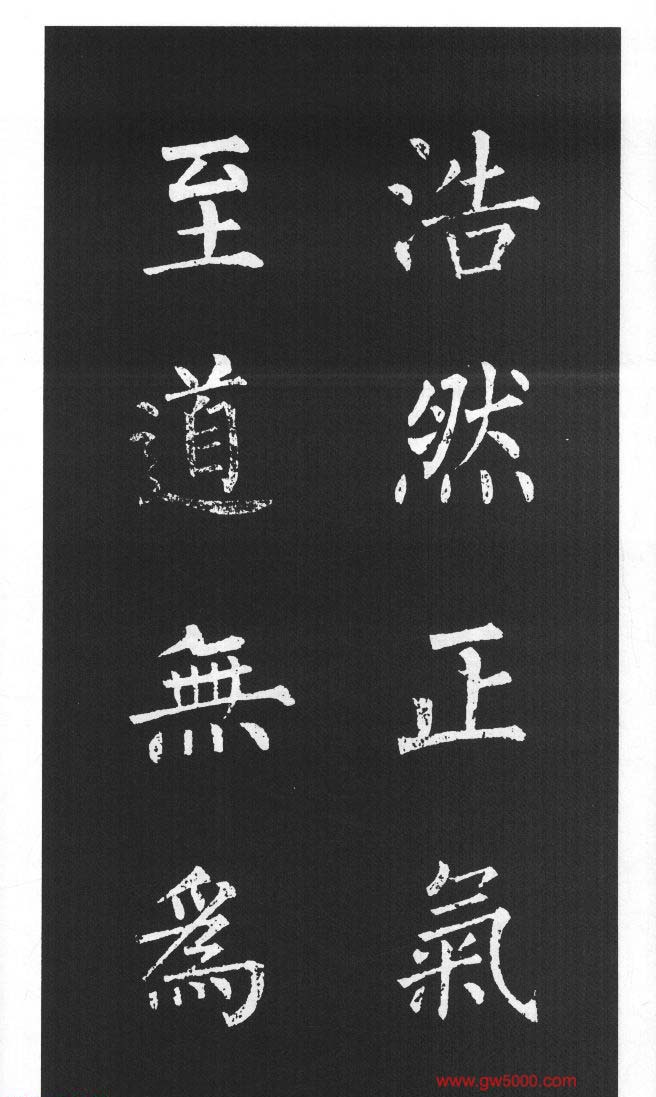 浩然正氣
至道無爲
www.gw5000.com